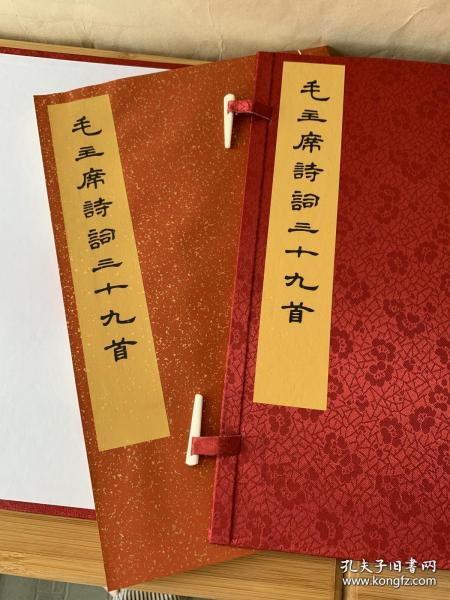 毛主席詩詞三十九首
毛主席詩詞三十九首
孔夫子旧书网
www.kongfz.com